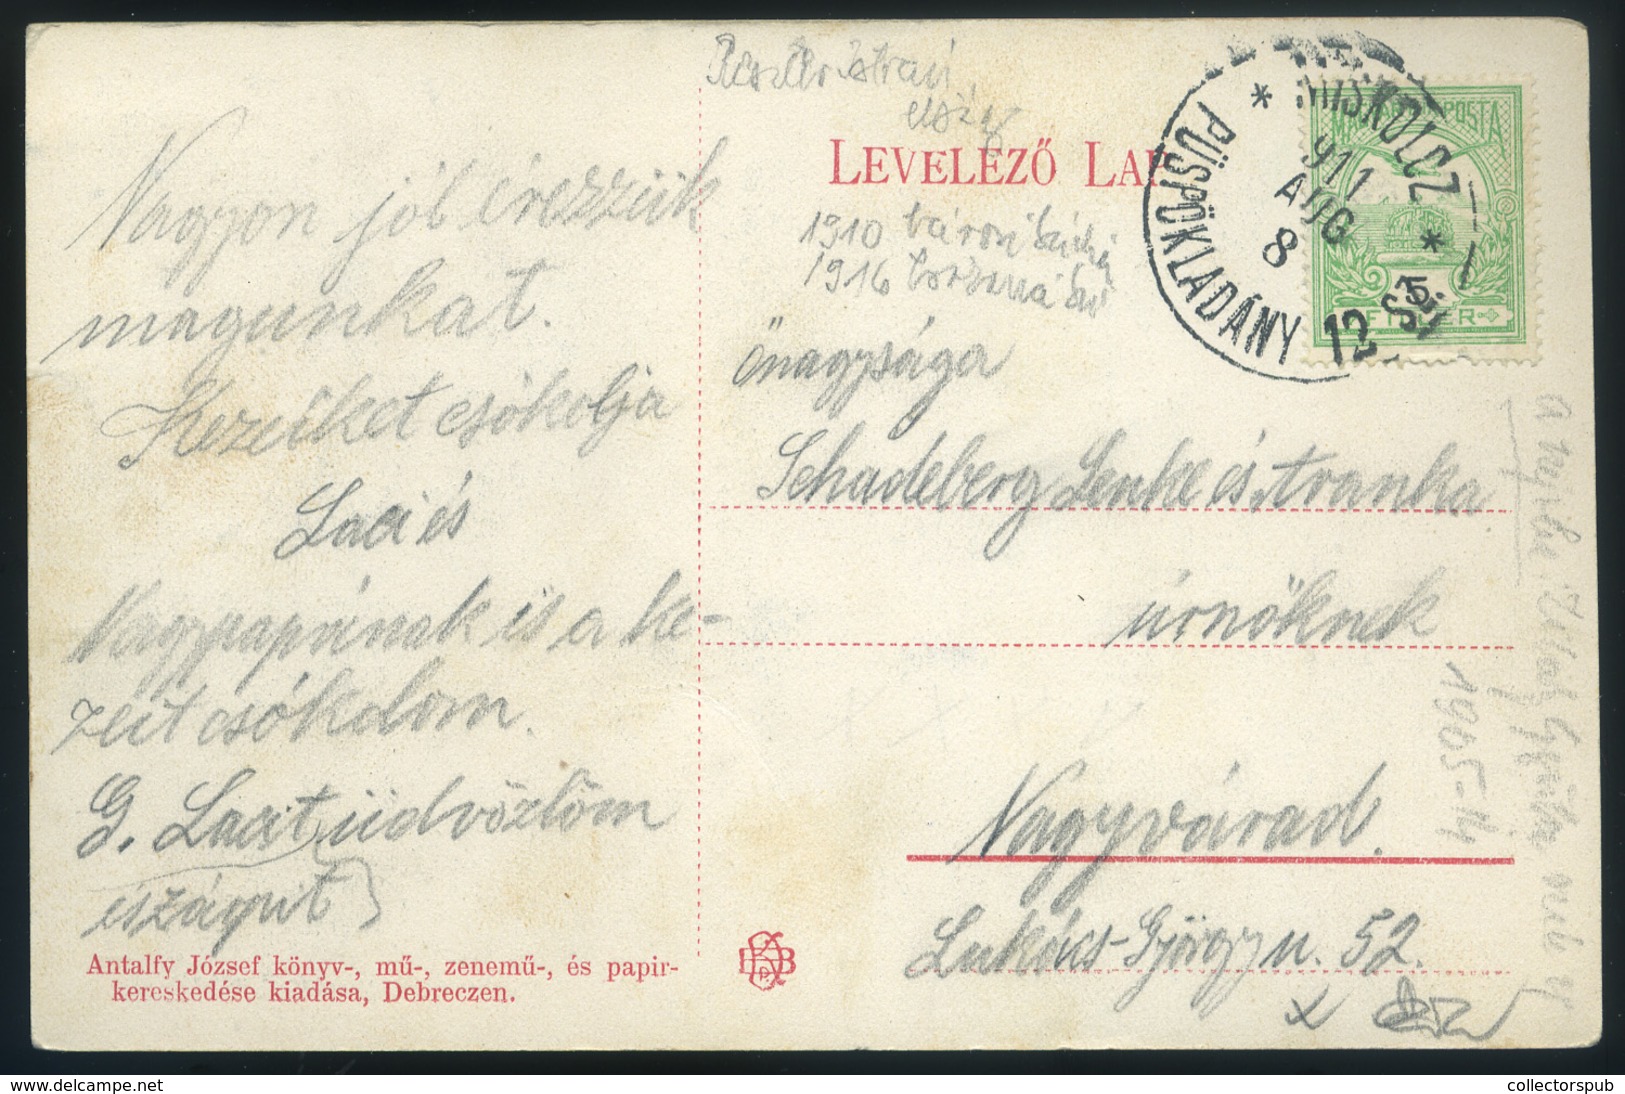 Nagyon jól érezzük
magunkat.
Kezeiket csókolja
Laci és
Nagypapának is a ke-
zeit csókolom.
G. Lacit üdvözlöm
és
Antalfy József könyv-, mű-, zenemű-, és papir-
kereskedése kiadása, Debreczen.
LEVELEZŐ LAP
1910 városi
1916
MISKOLCZ * PÜSPÖKLADÁNY *
911
AUG
8
12
MAGYAR POSTA
5
FILLÉR
Önagysága
Schadeberg Lenke és Iranka
úrnőknek
Nagyvárad.
Lukács-György u. 52.
1905-14
a Gyula
collectorspub